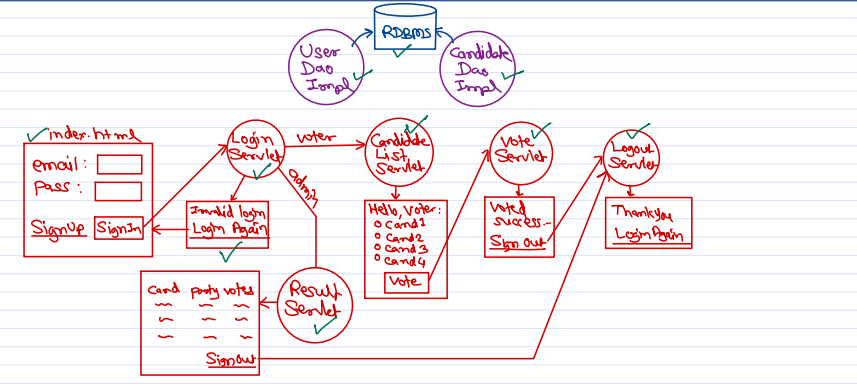 RDBMS
User
Dao
Impl
Candidate
Dao
Impl
index.html
email:
pass:
SignUp
SignIn
Login
Servlet
voter
admin
Invalid login
Login Again
Candidate
List
Servlet
Hello, Voter:
Cand1
Cand2
Cand3
Cand4
Vote
Vote
Servlet
Voted
success...
Sign out
Logout
Servlet
Thankyou
Login Again
Result
Servlet
Cand party votes
Signout